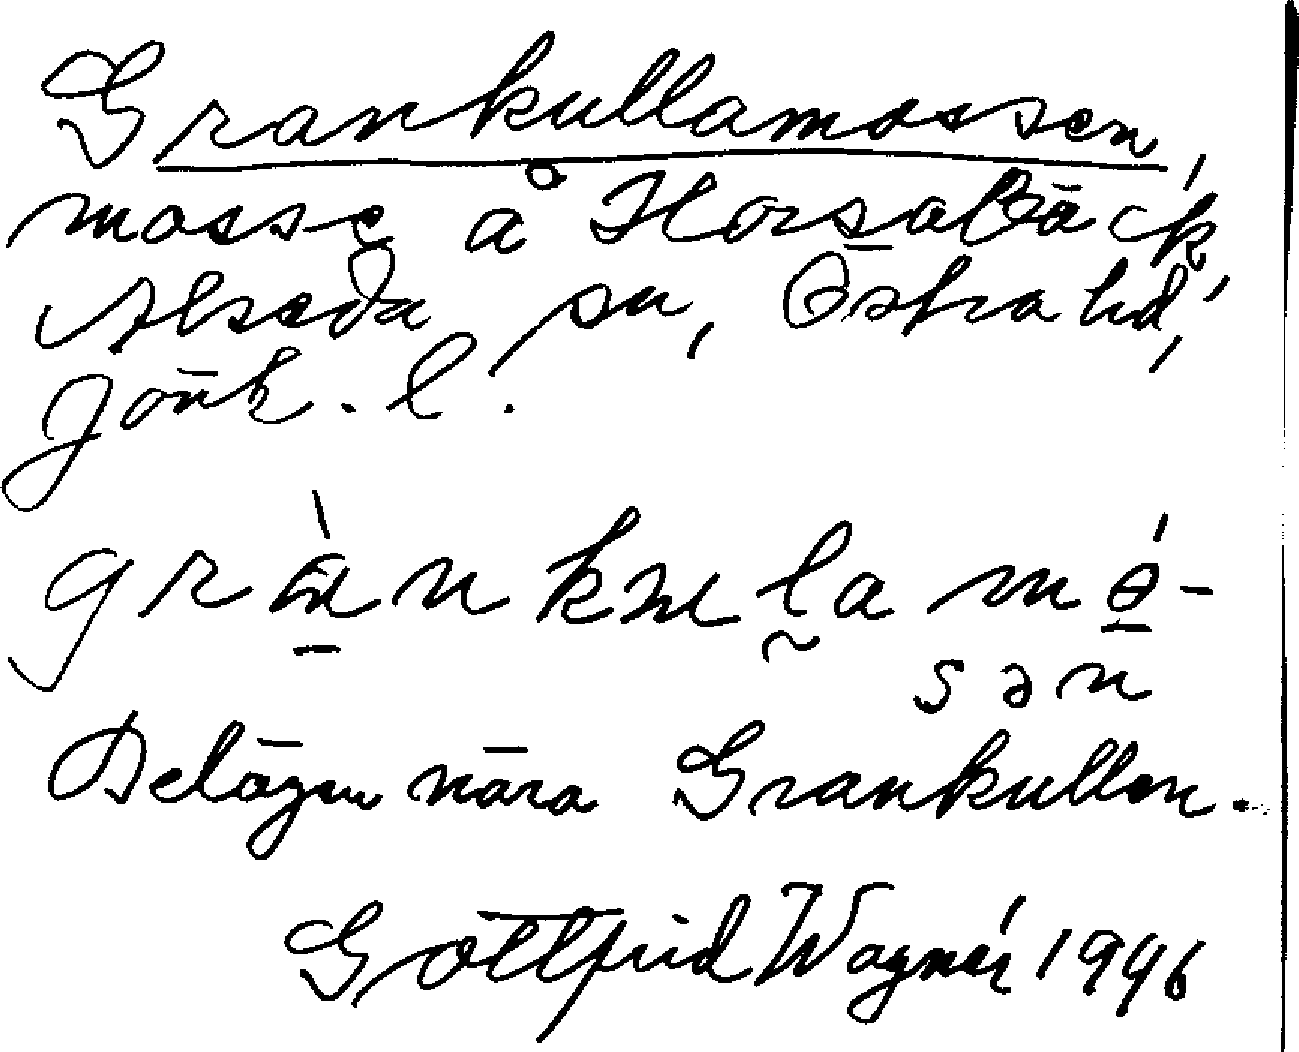 Grankullamossen,
mosse å Horsabäck
Alseda sn, Östra hd,
Jönk. l.
grànkula mó-
sən
Belägen nära Grankullen.
Gottfrid Wagnér 1946